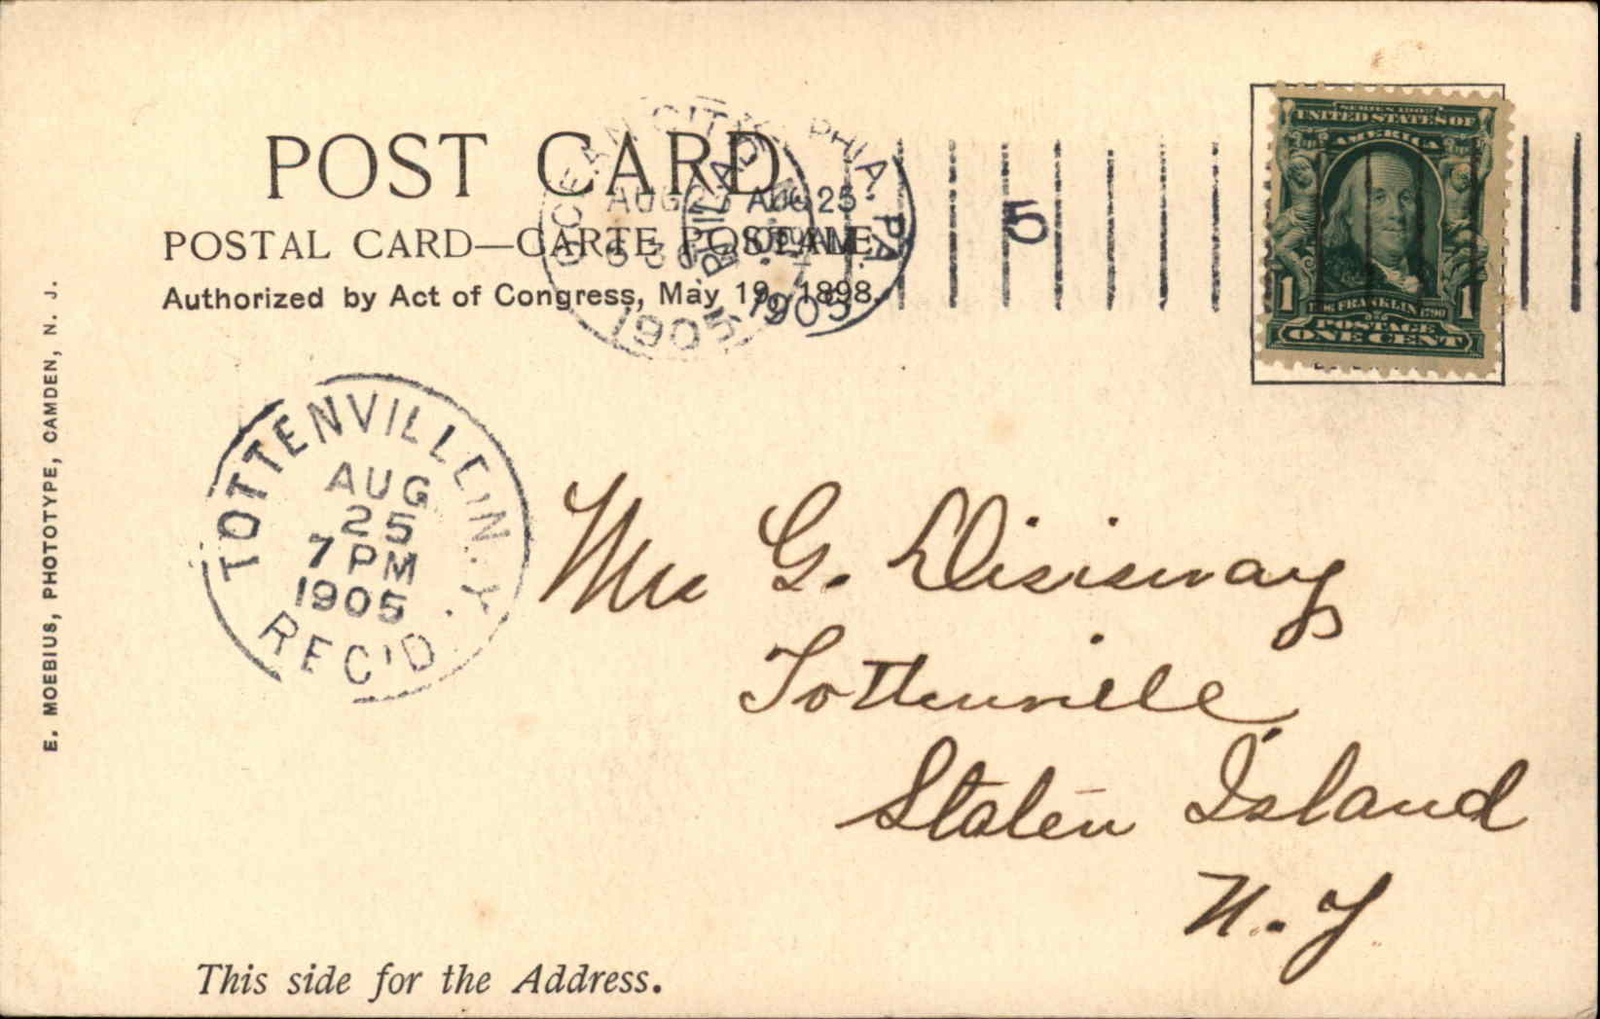 POST CARD
POSTAL CARD—CARTE POSTALE.
Authorized by Act of Congress, May 19, 1898.
OCEAN CITY
AUG
5 30
1905
PHILADELPHIA. PA.
AUG 25
AM
1905
5
SERIES 1902
UNITED STATES OF
AMERICA
1 FRANKLIN 1790 1
POSTAGE
ONE CENT
E. MOEBIUS, PHOTOTYPE, CAMDEN, N. J.
TOTTENVILLE N.Y.
AUG
25
7 PM
1905
REC'D.
G. Disisway
Tottenville
Staten Island
N. Y
This side for the Address.